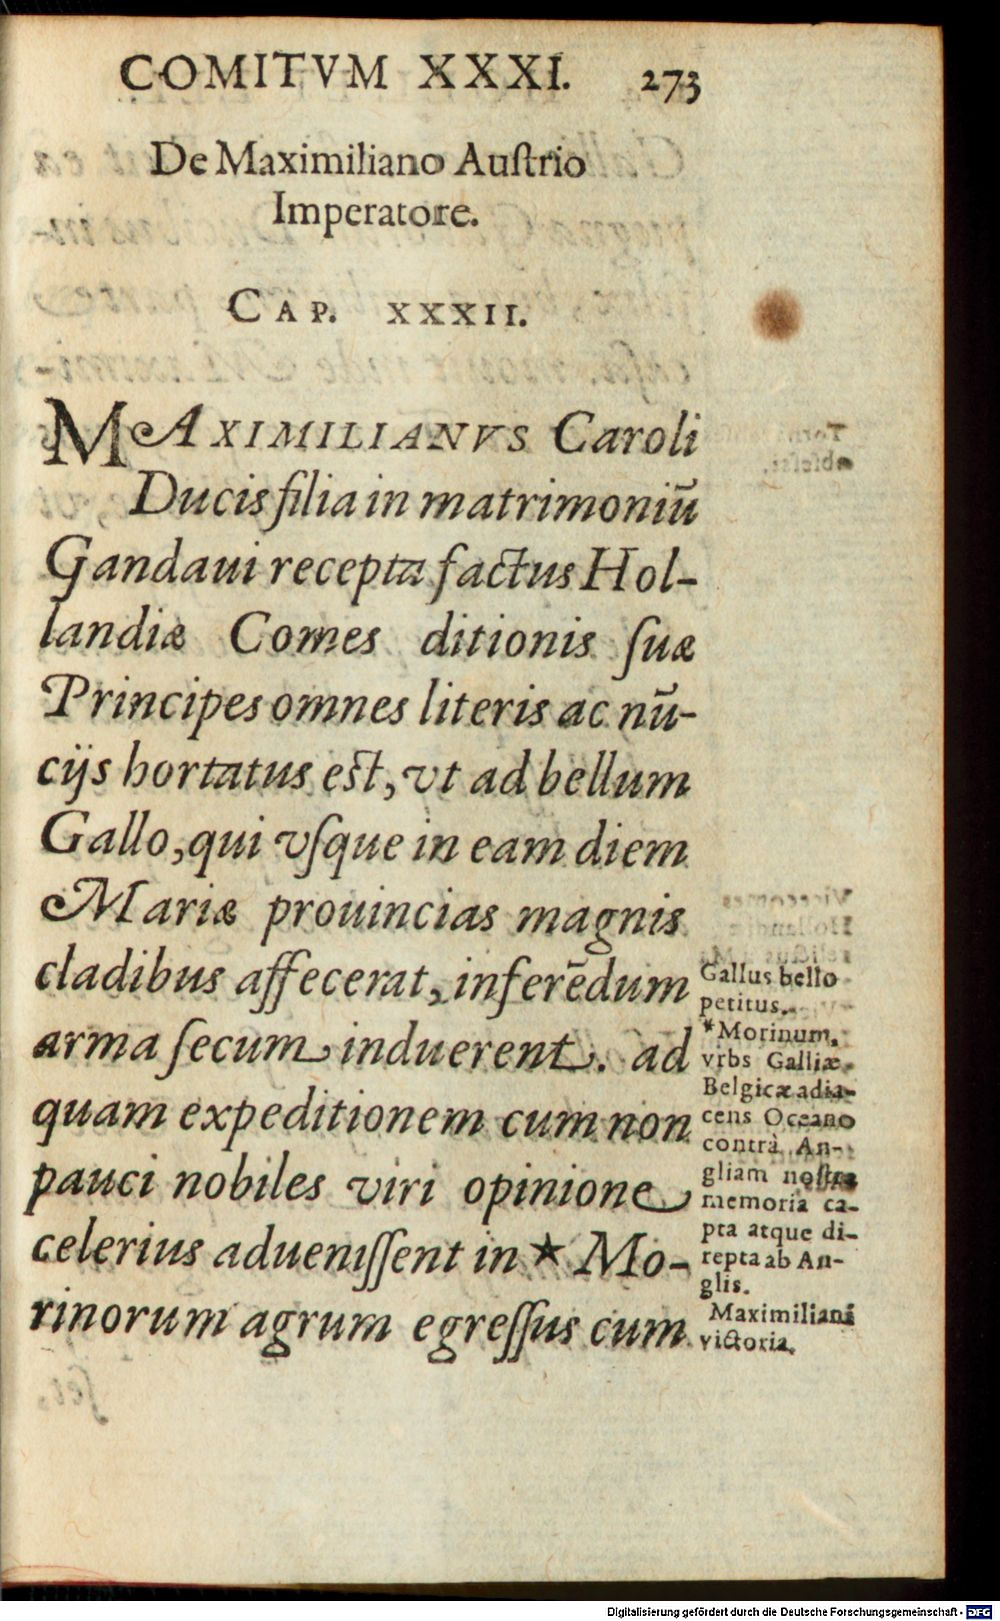 COMITVM XXXI. 273
De Maximiliano Auſtrio
Imperatore.
CAP. XXXII.
MAXIMILIANVS Caroli
Ducis filia in matrimoniū
Gandaui recepta factus Hol-
landiæ Comes ditionis ſuæ
Principes omnes literis ac nū-
cijs hortatus eſt, vt ad bellum
Gallo, qui vſque in eam diem
Mariæ prouincias magnis
cladibus affecerat, inferēdum
arma ſecum induerent. ad
quam expeditionem cum non
pauci nobiles viri opinione
celerius adueniſſent in * Mo-
rinorum agrum egreſſus cum
Gallus bello
petitus.
*Morinum,
vrbs Galliæ
Belgicæ adia-
cens Oceano
contrà An-
gliam noſtra
memoria ca-
pta atque di-
repta ab An-
glis.
Maximiliani
victoria.
Digitalisierung gefördert durch die Deutsche Forschungsgemeinschaft - DFG